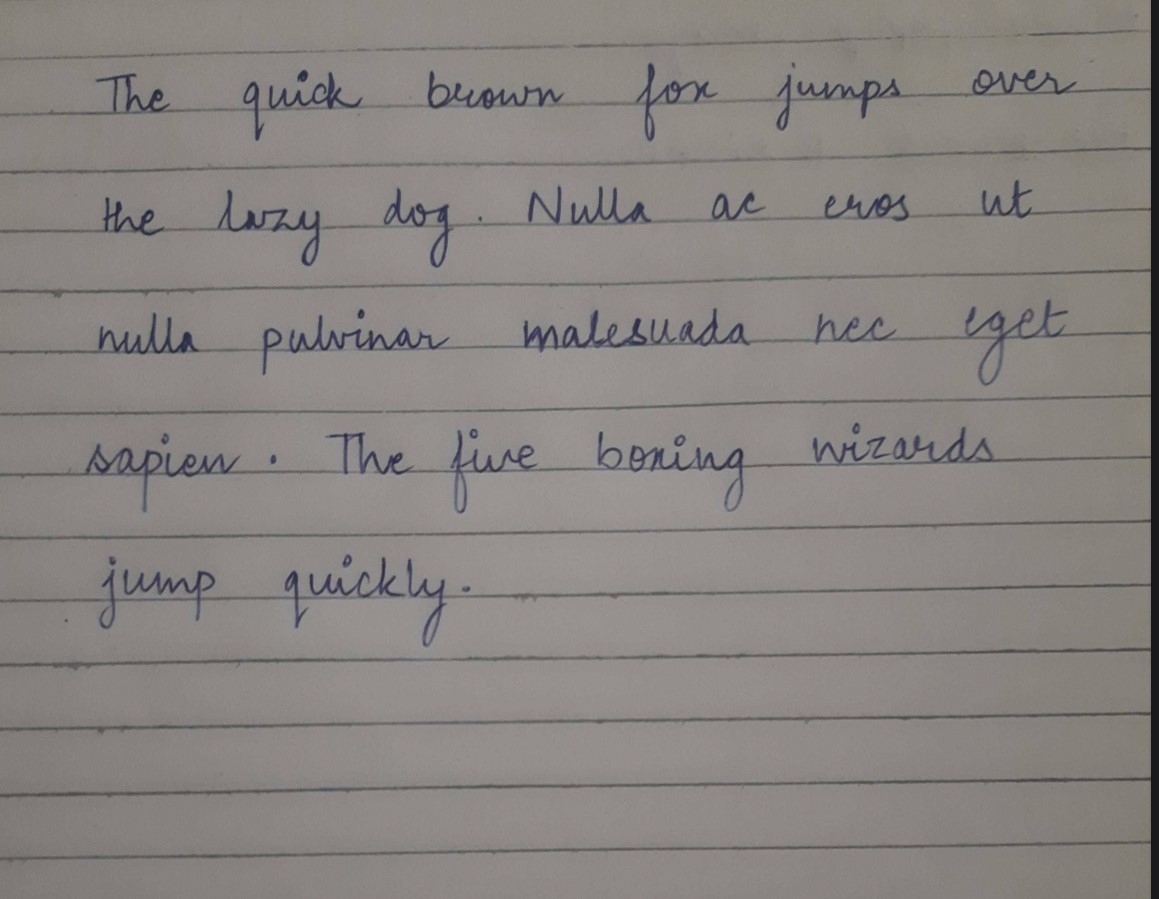 The quick brown fox jumps over
the lazy dog. Nulla ac eros ut
nulla pulvinar malesuada nec eget
sapien. The five boxing wizards
jump quickly.